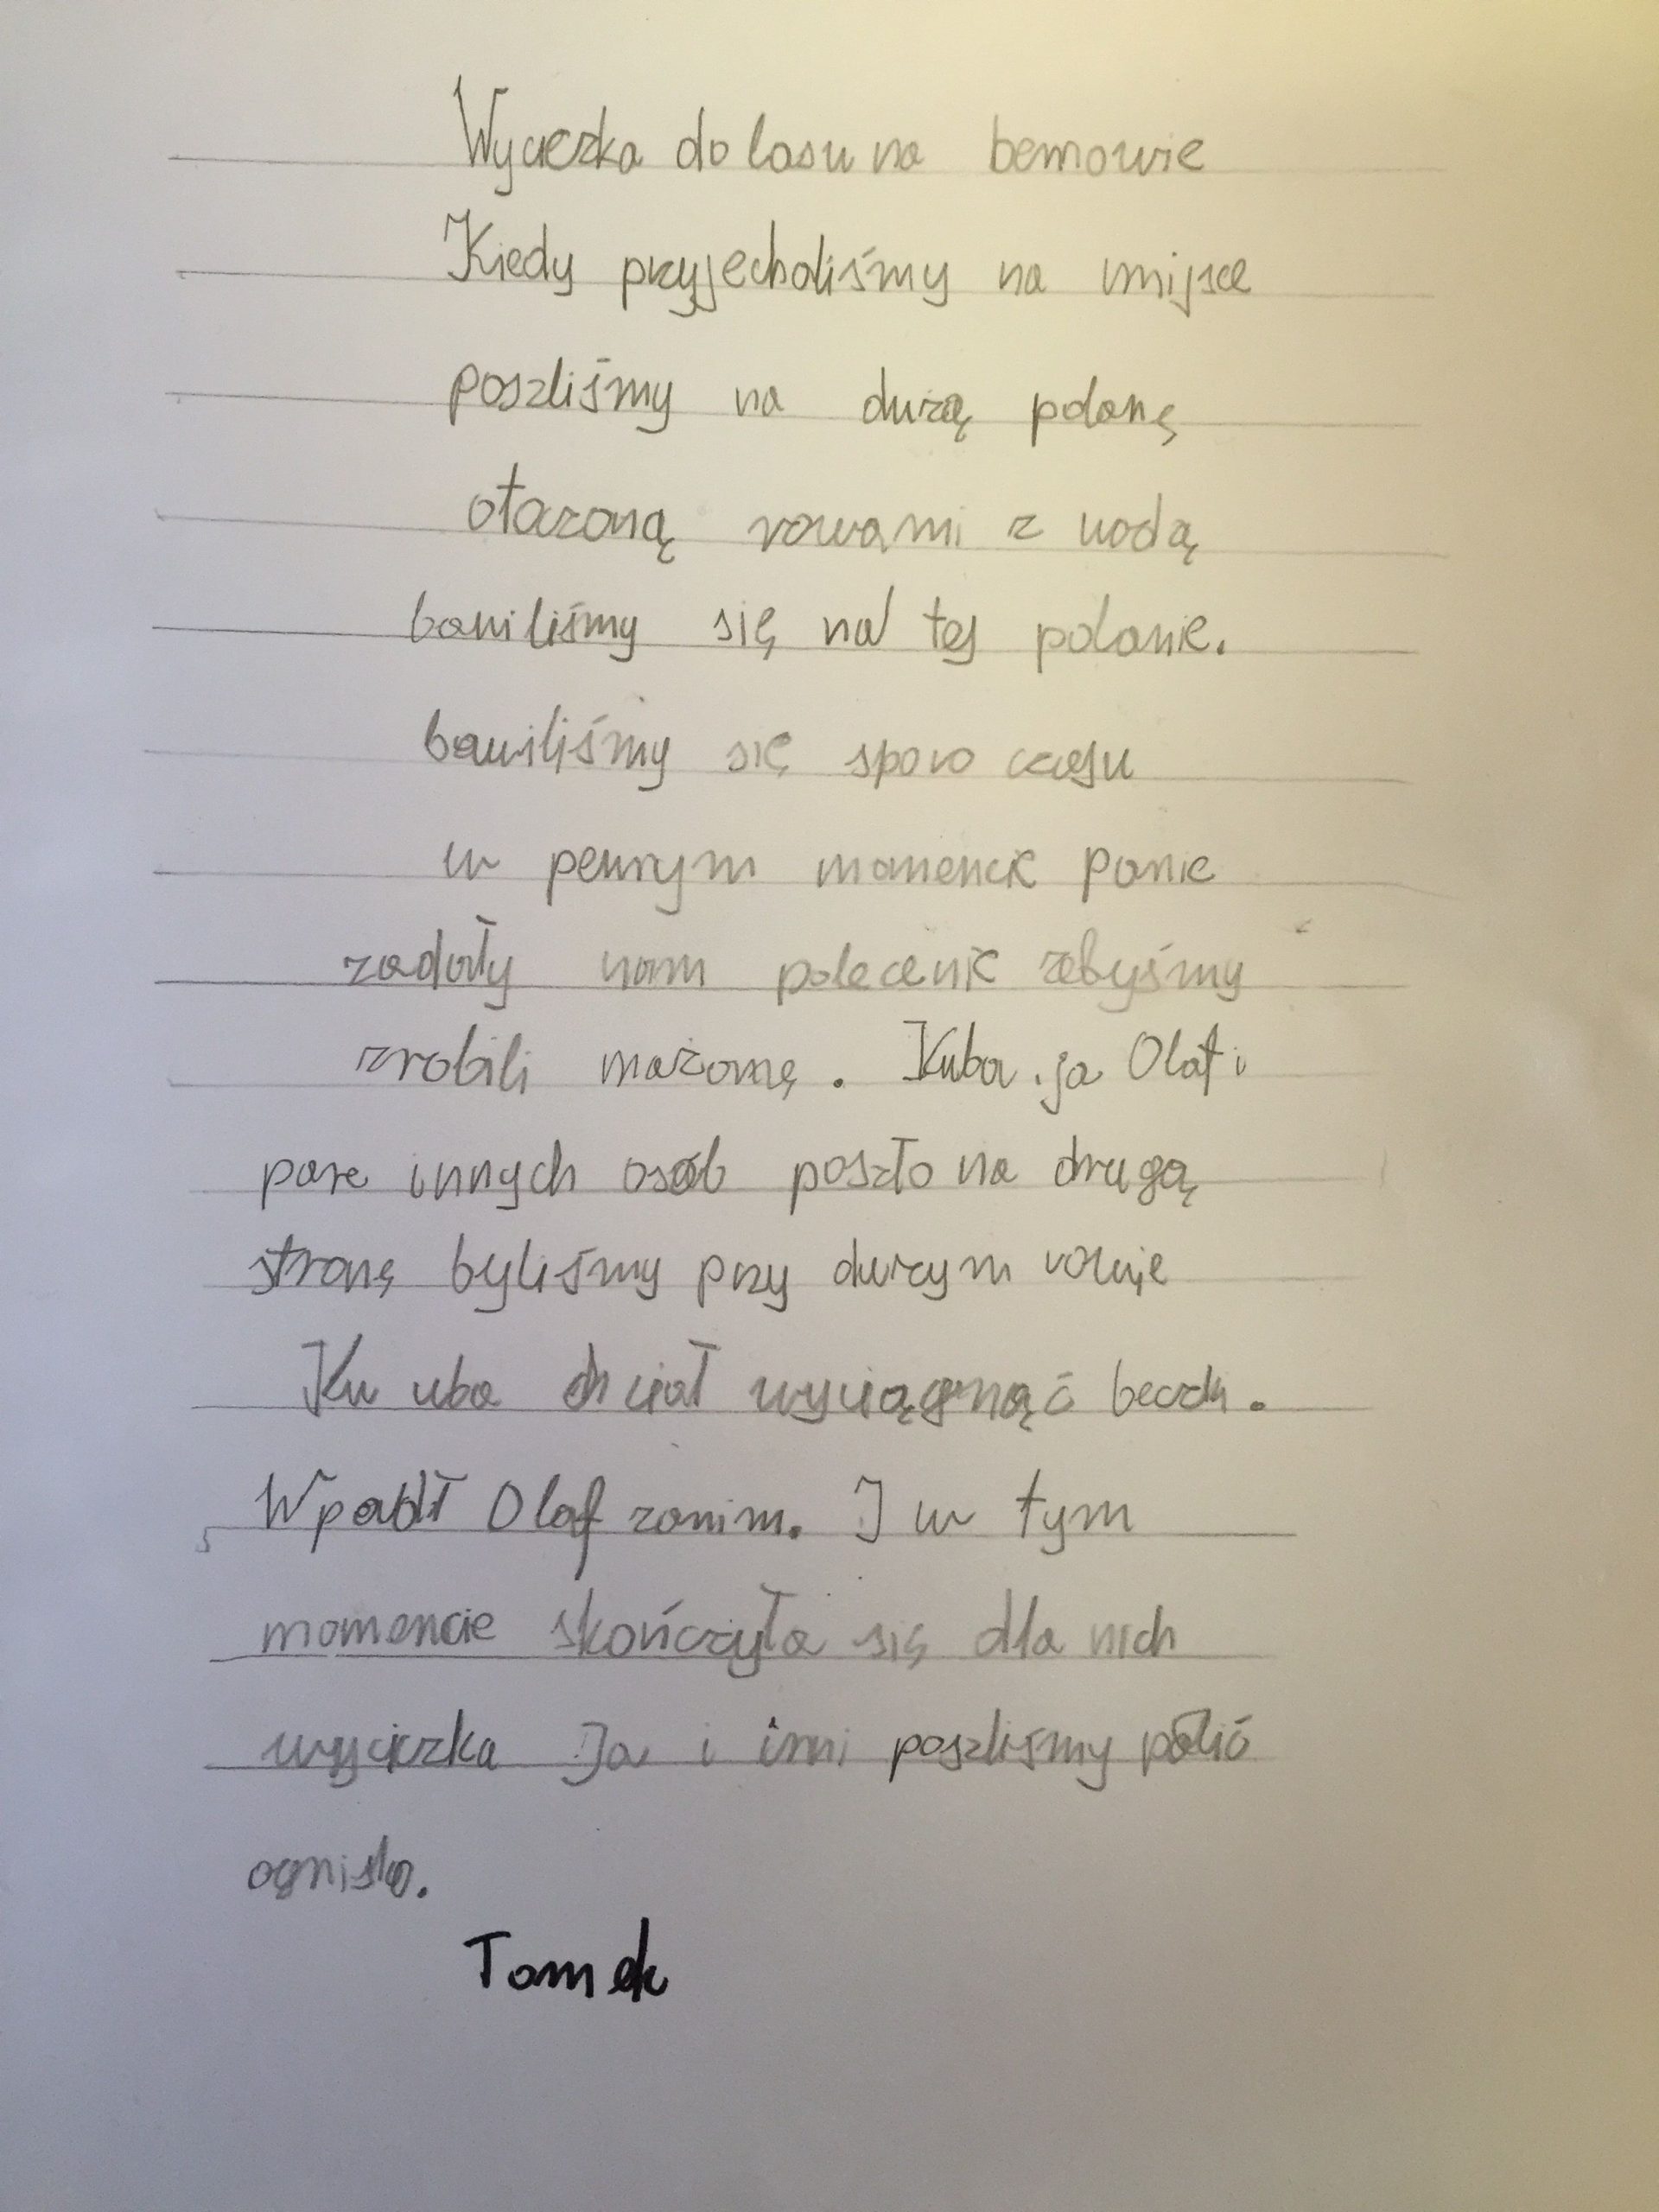 Wycieczka do lasu na bemowie
Kiedy przyjechaliśmy na mijsce
poszliśmy na dużą polanę
otaczoną rowami z wodą
bawiliśmy się na tej polanie.
bawiliśmy się sporo czasu
w pewnym momencie Panie
zadały nam polecenie żebyśmy
zrobili mażannę. Kuba ja Olaf i
pare innych osób poszło na drugą
stronę byliśmy przy dużym rowie
Ku uba chciał wyciągnąć
Wpadł Olaf zanim. I w tym
momencie skończyła się dla nich
wycieczka Ja i inni poszliśmy palić
ognisko.
Tomek